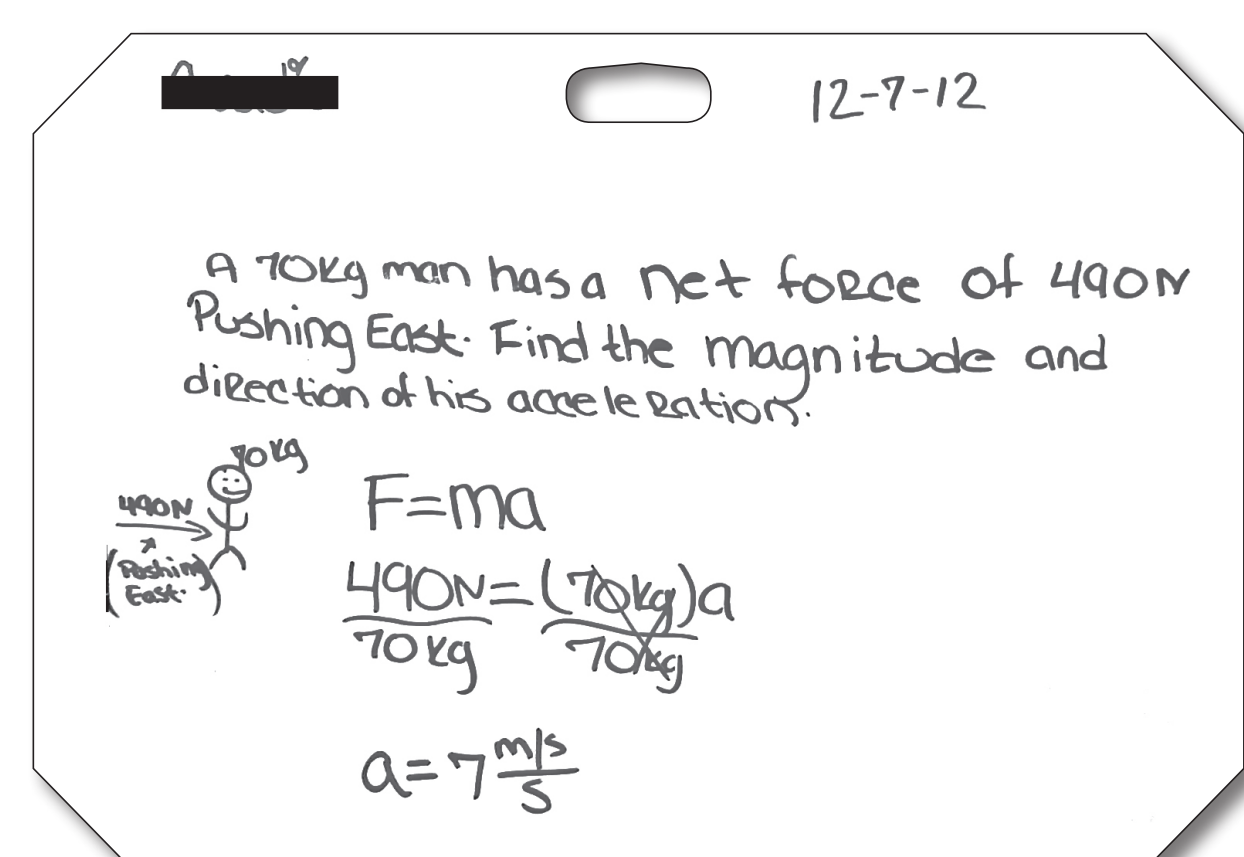 12-7-12
A 70kg man has a net force of 490N
Pushing East. Find the magnitude and
direction of his acceleration.
70kg
490N
(Pushing
East.)
F=ma
490N = (70kg)a
70kg 70kg
a = 7 m/s
s